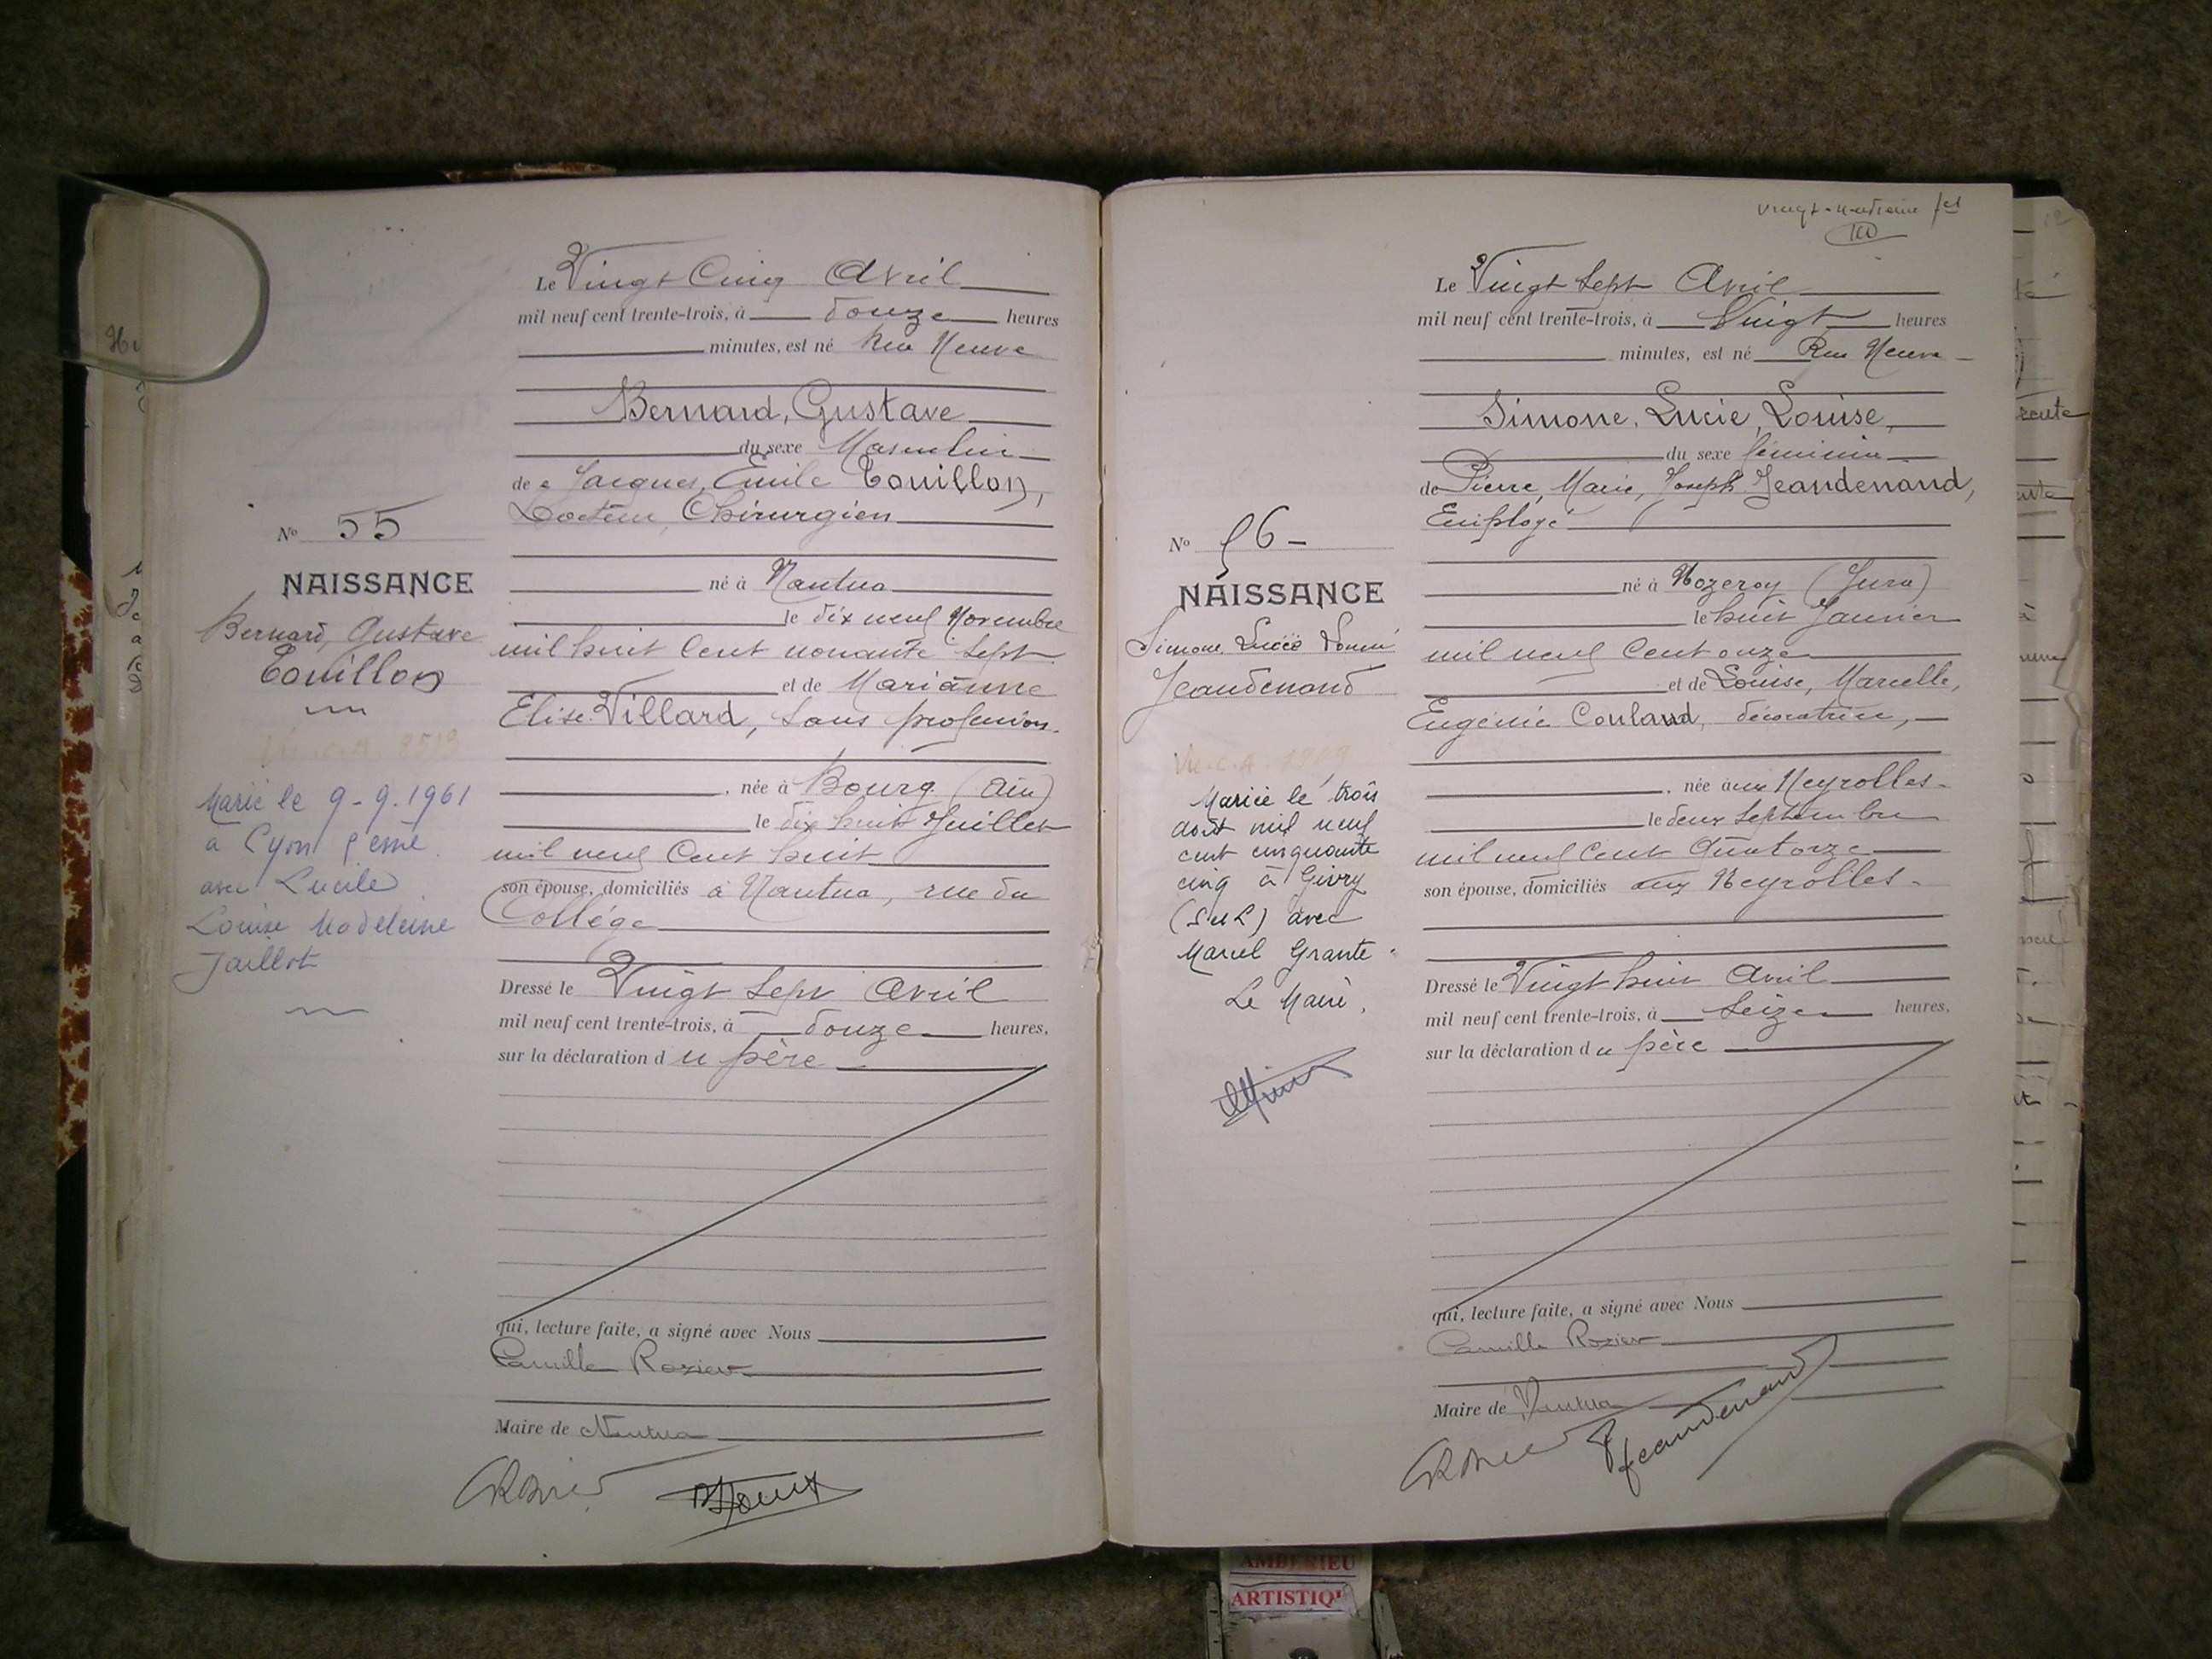 No 55
NAISSANCE
Bernard, Gustave
Touillon
Marié le 9-9-1961
à Lyon 5 eme
avec Lucile
Louise Madeleine
Jaillot
Le Vingt Cinq Avril
mil neuf cent trente-trois, à douze heures
minutes, est né Rue Neuve
Bernard, Gustave
du sexe Masculin
de Jacques, Emile Touillon,
Docteur, Chirurgien
né à Nantua
le dix neuf Novembre
mil huit Cent nonante sept
et de Marianne
Elise Villard, sans profession.
, née à Bourg (Ain)
le dix huit Juillet
mil neuf Cent huit
son épouse, domiciliés à Nantua, rue du
Collége
Dressé le Vingt sept Avril
mil neuf cent trente-trois, à douze heures,
sur la déclaration du père
qui, lecture faite, a signé avec Nous
Camille Rozier
Maire de Nantua
Vingt-
100
No 56-
NAISSANCE
Simone Lucie Louise
Jeandenand
Mariée le trois
août mil neuf
cent cinquante
cinq à Givry
(S et L) avec
Marcel Grante
Le Maire,
Le Vingt sept Avril
mil neuf cent trente-trois, à Vingt heures
minutes, est né Rue Neuve
Simone, Lucie, Louise,
du sexe féminin
de Pierre, Marie, Joseph Jeandenand,
Employé
né à Nozeroy (Jura)
le huit Janvier
mil neuf Cent onze
et de Louise, Marcelle,
Eugénie Couland, décoratrice,
, née aux Neyrolles
le deux Septembre
mil neuf Cent Quatorze
son épouse, domiciliés aux Neyrolles
Dressé le Vingt huit Avril
mil neuf cent trente-trois, à Seize heures,
sur la déclaration du père
qui, lecture faite, a signé avec Nous
Camille Rozier
Maire de Nantua
Jeandenand
ARTISTIQ